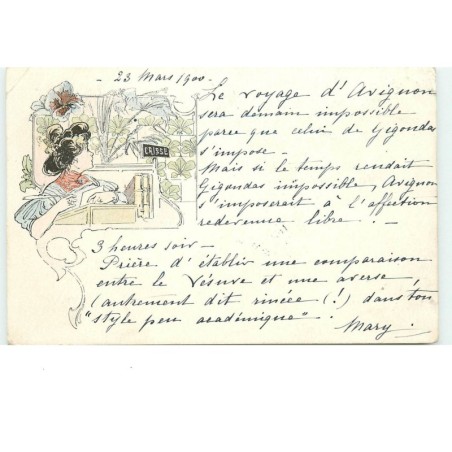 - 23 Mars 1900 -
Le voyage d'Avignon
sera demain impossible
parce que celui de Gigondas
s'impose -
Mais si le temps rendait
Gigondas impossible, Avignon
s'imposerait à l'affection
redevenue libre. -
CAISSE
3 heures soir -
Prière d'établir une comparaison
entre le Vésuve et une averse,
(autrement dit rincée (!) dans ton
"style peu académique"
Mary.